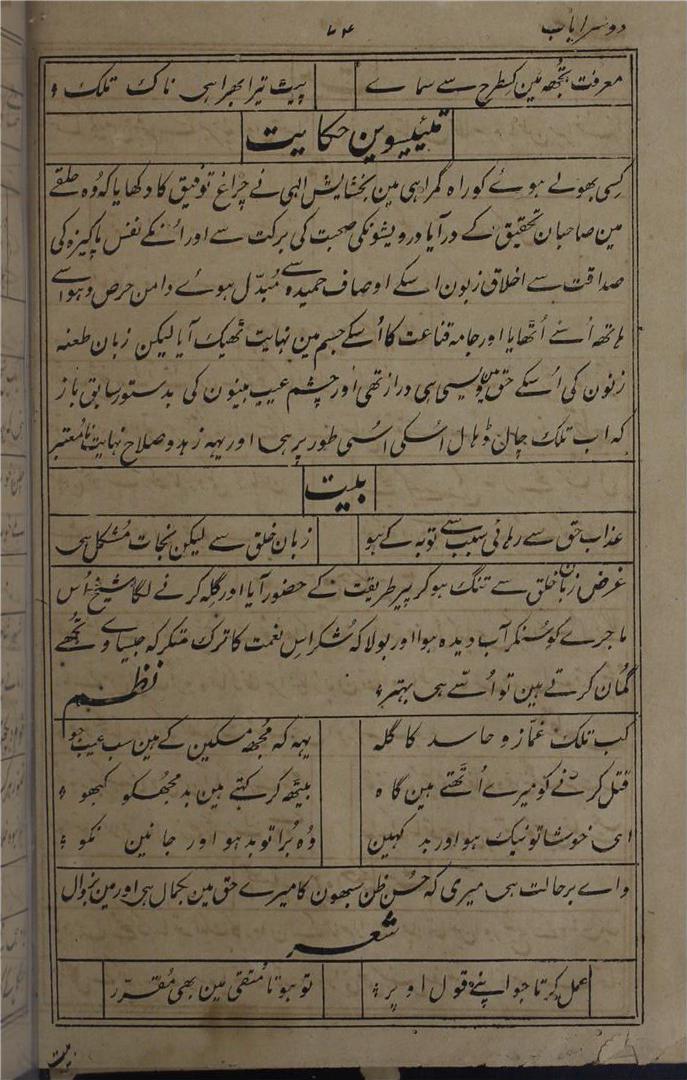 دوسرا باب ۷۴
معرفت تجھہ مین کسطرح سے سماے پیٹ تیرا بھرا ہی ناک تلک
تیئیسوین حکایت
کسی بھولے ہوے کو راہ گمراہی مین بخشایش الہی نے چراغ توفیق کا دکھایا کہ وُہ حلقے
مین صاحبان تحقیق کے در آیا درویشونکی صحبت کی برکت سے اور اُنکے نفس پاکیزہ کی
صداقت سے اخلاق زبون اسکے اوصاف حمیدہ سے مُبدّل ہوے دامن حرص و ہوا سے
ہاتھہ اُسنے اُٹھایا اور جامہ قناعت کا اُسکے جسم مین نہایت ٹھیک آیا لیکن زبان طعنہ
زنون کی اُسکے حق مین ویسی ہی دراز تھی اور چشم عیب بینون کی بدستور سابق باز
کہ اب تلک چال ڈھال اُسکی اُسی طور پر ہی اور یہہ زہد و صلاح نہایت نامُعتبر
بیت
عذاب حق سے رہائی سبب سے توبہ کے ہو زبان خلق سے لیکن نجات مُشکل ہی
غرض زبان خلق سے تنگ ہوکر پیر طریقت کے حضور آیا اور گلہ کرنے لگا شیخ اُس
ماجرے کو سُنکر آب دیدہ ہوا اور بولا کہ شُکر اس نعمت کا ترک متکر کہ جیسا وے تجھے
گمُان کرتے ہین تو اُسّے ہی بہتر
نظم
کب تلک غمّاز و حاسد کا گلہ یہہ کہ مُجھہ مسکین کے ہین سب عیب جو
قتل کرنے کو میرے اُٹھتے ہین گاہ بیٹھہ کر کہتے ہین بد مجھکو کبھو
ای خوشا تو نیک ہو اور بد کہین وُہ بُرا تو بد ہو اور جانین نکو
واے بر حالت ہی میری کہ حُسن ظن سبھون کا میرے حق مین بکمال ہی اور مین بزوال
شعر
عمل کرتا جو اپنے قول اوپر تو ہوتا مُتقی مین بھی مُقرّر